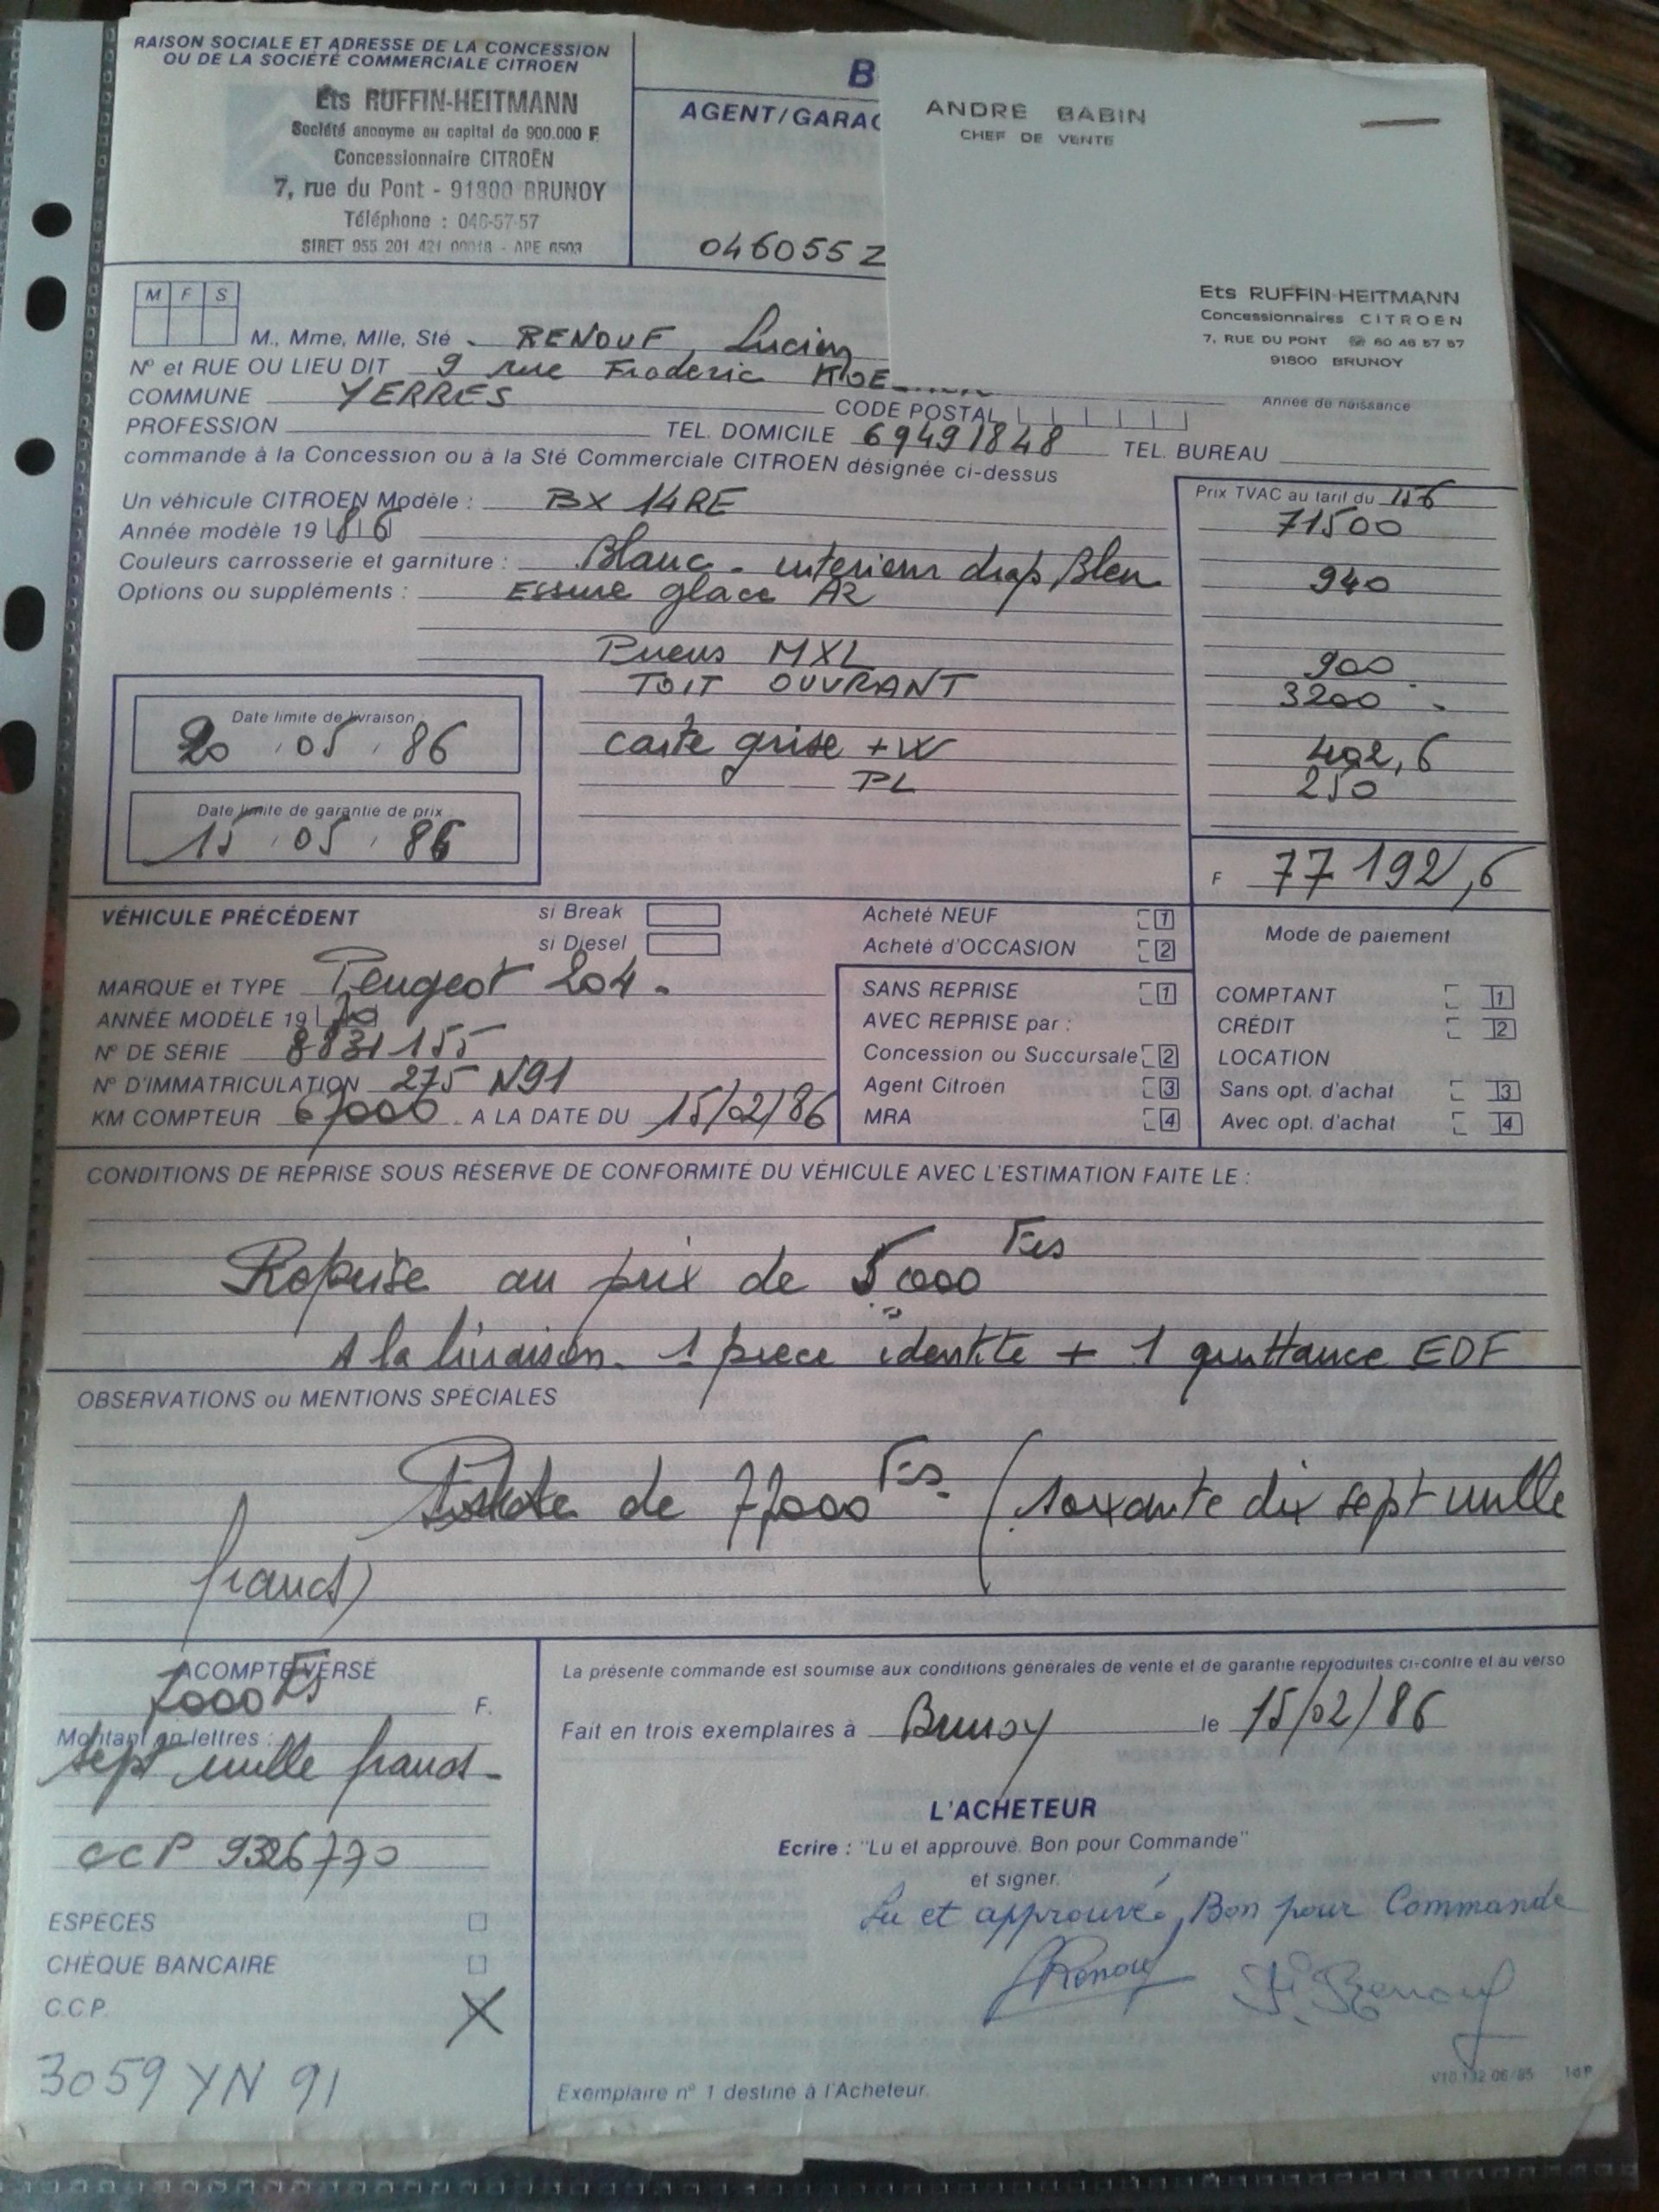 RAISON SOCIALE ET ADRESSE DE LA CONCESSION
OU DE LA SOCIÉTÉ COMMERCIALE CITROEN
Ets RUFFIN-HEITMANN
Société anonyme au capital de 900.000 F.
Concessionnaire CITROËN
7, rue du Pont - 91800 BRUNOY
Téléphone : 046-57-57
SIRET 955 201 421 00018 - APE 6503
B
AGENT/GARAG
046055 Z
ANDRE BABIN
CHEF DE VENTE
Ets RUFFIN-HEITMANN
Concessionnaires CITROEN
7, RUE DU PONT ☎ 60 46 57 57
91800 BRUNOY
M F S
M., Mme, Mlle, Sté - RENOUF, Lucien
N° et RUE OU LIEU DIT 9 rue Froderic
COMMUNE YERRES CODE POSTAL Année de naissance
PROFESSION TEL. DOMICILE 69491848 TEL. BUREAU
commande à la Concession ou à la Sté Commerciale CITROEN désignée ci-dessus
Un véhicule CITROEN Modèle : BX 14RE Prix TVAC au tarif du
71500
Année modèle 19 86
Couleurs carrosserie et garniture : Blanc - interieur drap Bleu
Options ou suppléments : Essuie glace AR 940
Pneus MXL 900
TOIT OUVRANT 3200
Date limite de livraison :
20 05 86
carte grise + W 402,6
PL 250
Date limite de garantie de prix
15 05 86
F 77 192,6
VÉHICULE PRÉCÉDENT
si Break
si Diesel
MARQUE et TYPE Peugeot 204.
ANNÉE MODÈLE 19 70
N° DE SÉRIE 8831155
N° D'IMMATRICULATION 275 N91
KM COMPTEUR 67000 A LA DATE DU 15/02/86
Acheté NEUF 1
Acheté d'OCCASION 2
SANS REPRISE 1
AVEC REPRISE par :
Concession ou Succursale 2
Agent Citroën 3
MRA 4
Mode de paiement
COMPTANT 1
CRÉDIT 2
LOCATION
Sans opt. d'achat 3
Avec opt. d'achat 4
CONDITIONS DE REPRISE SOUS RÉSERVE DE CONFORMITÉ DU VÉHICULE AVEC L'ESTIMATION FAITE LE :
Reprise au prix de 5000 Frs
A la livraison - 1 piece identite + 1 quittance EDF
OBSERVATIONS ou MENTIONS SPÉCIALES
de 77000 Frs. (soixante dix sept mille
francs)
ACOMPTE VERSÉ
7000 Frs F.
Montant en lettres :
sept mille francs -
CCP 9326770
ESPÈCES
CHÈQUE BANCAIRE
C.C.P. X
3059 YN 91
La présente commande est soumise aux conditions générales de vente et de garantie reproduites ci-contre et au verso
Fait en trois exemplaires à Brunoy le 15/02/86
L'ACHETEUR
Ecrire : "Lu et approuvé. Bon pour Commande"
et signer.
Lu et approuvé, Bon pour Commande
Renouf Renouf
Exemplaire n° 1 destiné à l'Acheteur.
V10.132 06/85